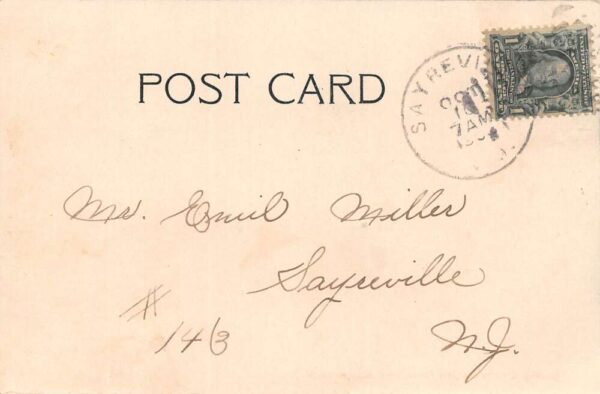 POST CARD
SAYREVI
7AM
1
1
Mr. Emil Miller
Sayreville
#
143
N.J.